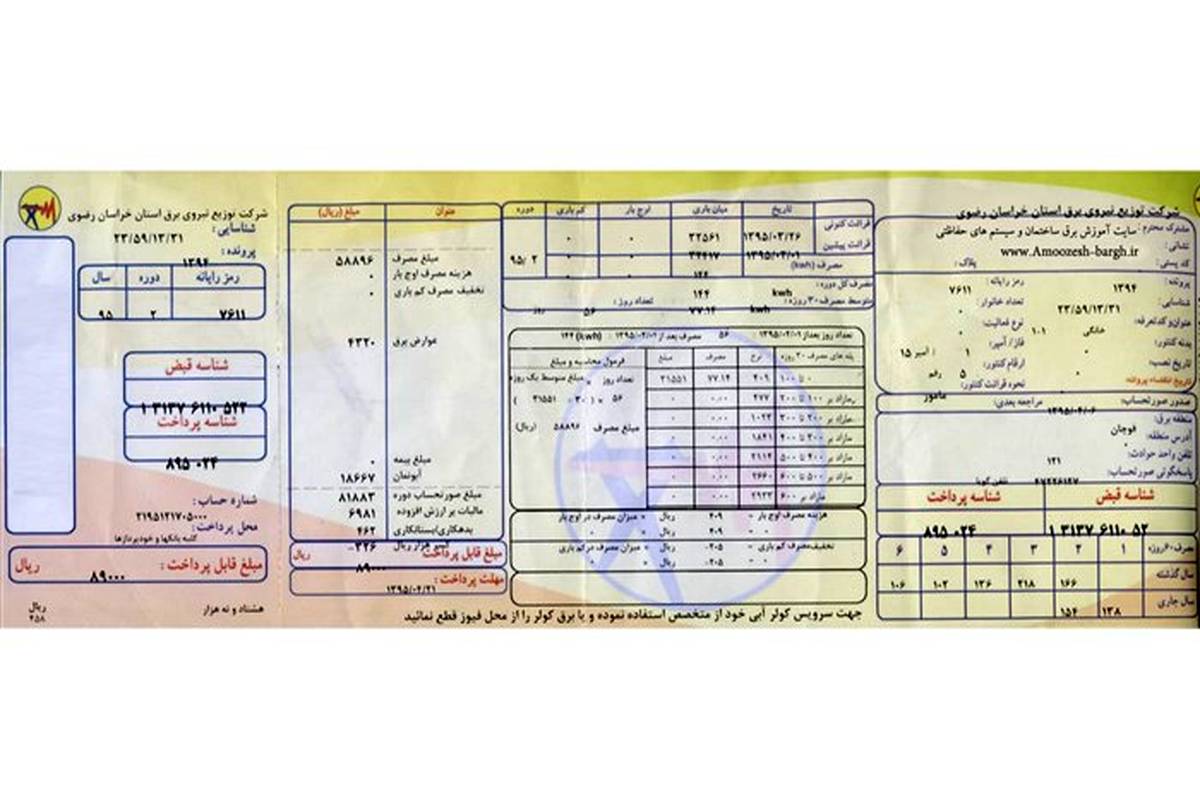 شرکت توزیع نیروی برق استان خراسان رضوی
مشترک محترم : سایت آموزش برق ساختمان و سیستم های حفاظتی
نشانی :
www.Amoozesh-bargh.ir
کد پستی : پلاک :
پرونده : ۱۳۹۴ رمز رایانه : ۷۶۱۱
شناسایی : ۲۳/۵۹/۱۳/۳۱ تعداد خانوار : ۰
عنوان و کد تعرفه : خانگی ۱۰۱ نوع فعالیت : ۰
بدنه کنتور : ۰ فاز/ آمپر : ۱ / آمپر ۱۵
تاریخ نصب : ۰ ارقام کنتور : ۵ رقم
تاریخ انقضاء پروانه نحوه قرائت کنتور : مامور
صدور صورتحساب : ۱۳۹۵/۰۴/۰۶ مراجعه بعدی :
منطقه برق : قوچان
آدرس منطقه : ۰
تلفن واحد حوادث : ۱۲۱
پاسخگوئی صورتحساب : تلفن گویا
شناسه قبض شناسه پرداخت
۱ ۳۱۳۷ ۶۱۱۰ ۵۲ ۸۹۵۰۲۴
مصرف ۶۰ روزه ۱ ۲ ۳ ۴ ۵ ۶
سال گذشته ۱۶۶ ۲۱۸ ۱۳۶ ۱۰۲ ۱۰۶
سال جاری ۱۳۸ ۱۵۴
تاریخ میان باری اوج بار کم باری دوره
قرائت کنونی ۱۳۹۵/۰۳/۲۶ ۳۲۵۶۱ ۰ ۰
قرائت پیشین ۱۳۹۵/۰۴/۰۱ ۰ ۰ ۹۵/ ۲
مصرف (kwh) ۱۴۴
مصرف کل دوره : kwh ۱۴۴
متوسط مصرف ۳۰ روزه : kwh ۷۷.۱۴ تعداد روز : ۵۶ روز
تعداد روز بعد از ۱۳۹۵/۰۲/۰۱ : ۵۶ مصرف بعد از ۱۳۹۵/۰۲/۰۱ : (kwh) ۱۴۴
پله های مصرف ۳۰ روزه نرخ مصرف مبلغ فرمول محاسبه و مبلغ
۰ تا ۱۰۰ ۴۰۹ ۷۷.۱۴ ۳۱۵۵۱ تعداد روز × مبلغ متوسط یک روزه
مازاد بر ۱۰۰ تا ۲۰۰ ۴۷۷ ۰.۰۰ ۰ ۵۶ × ( ۳۰ ÷ ۳۱۵۵۱ )
مازاد بر ۲۰۰ تا ۳۰۰ ۱۰۲۳ ۰.۰۰ ۰ مبلغ مصرف ۵۸۸۹۶ (ریال)
مازاد بر ۳۰۰ تا ۴۰۰ ۱۸۴۱ ۰.۰۰ ۰
مازاد بر ۴۰۰ تا ۵۰۰ ۲۱۱۴ ۰.۰۰ ۰
مازاد بر ۵۰۰ تا ۶۰۰ ۲۶۶۰ ۰.۰۰ ۰
مازاد بر ۶۰۰ ۲۹۳۳ ۰.۰۰ ۰
هزینه مصرف اوج بار = ۴۰۹ ریال × میزان مصرف در اوج بار
۰ = ۴۰۹ ریال × ۰
تخفیف مصرف کم باری = ۲۰۵- ریال × میزان مصرف در کم باری
۰ = ۲۰۵- ریال × ۰
جهت سرویس کولر آبی خود از متخصص استفاده نموده و یا برق کولر را از محل فیوز قطع نمائید
عنوان مبلغ (ریال)
مبلغ مصرف ۵۸۸۹۶
هزینه مصرف اوج بار ۰
تخفیف مصرف کم باری ۰
عوارض برق ۴۳۲۰
مبلغ بیمه ۰
آبونمان ۱۸۶۶۷
مبلغ صورتحساب دوره ۸۱۸۸۳
مالیات بر ارزش افزوده ۶۹۸۱
بدهکاری/بستانکاری ۴۶۲
کسر هزار ریال ۳۲۶-
مبلغ قابل پرداخت ۸۹۰۰۰ ریال
مهلت پرداخت : ۱۳۹۵/۰۴/۲۱
شرکت توزیع نیروی برق استان خراسان رضوی
شناسایی : ۲۳/۵۹/۱۳/۳۱
پرونده : ۱۳۹۴
رمز رایانه دوره سال
۷۶۱۱ ۲ ۹۵
شناسه قبض
۱ ۳۱۳۷ ۶۱۱۰ ۵۲۲
شناسه پرداخت
۸۹۵۰۲۴
شماره حساب : ۲۱۹۵۱۲۱۷۰۵۰۰۰
محل پرداخت : کلیه بانکها و خودپردازها
مبلغ قابل پرداخت : ۸۹۰۰۰ ریال
هشتاد و نه هزار ریال
۴۵۸